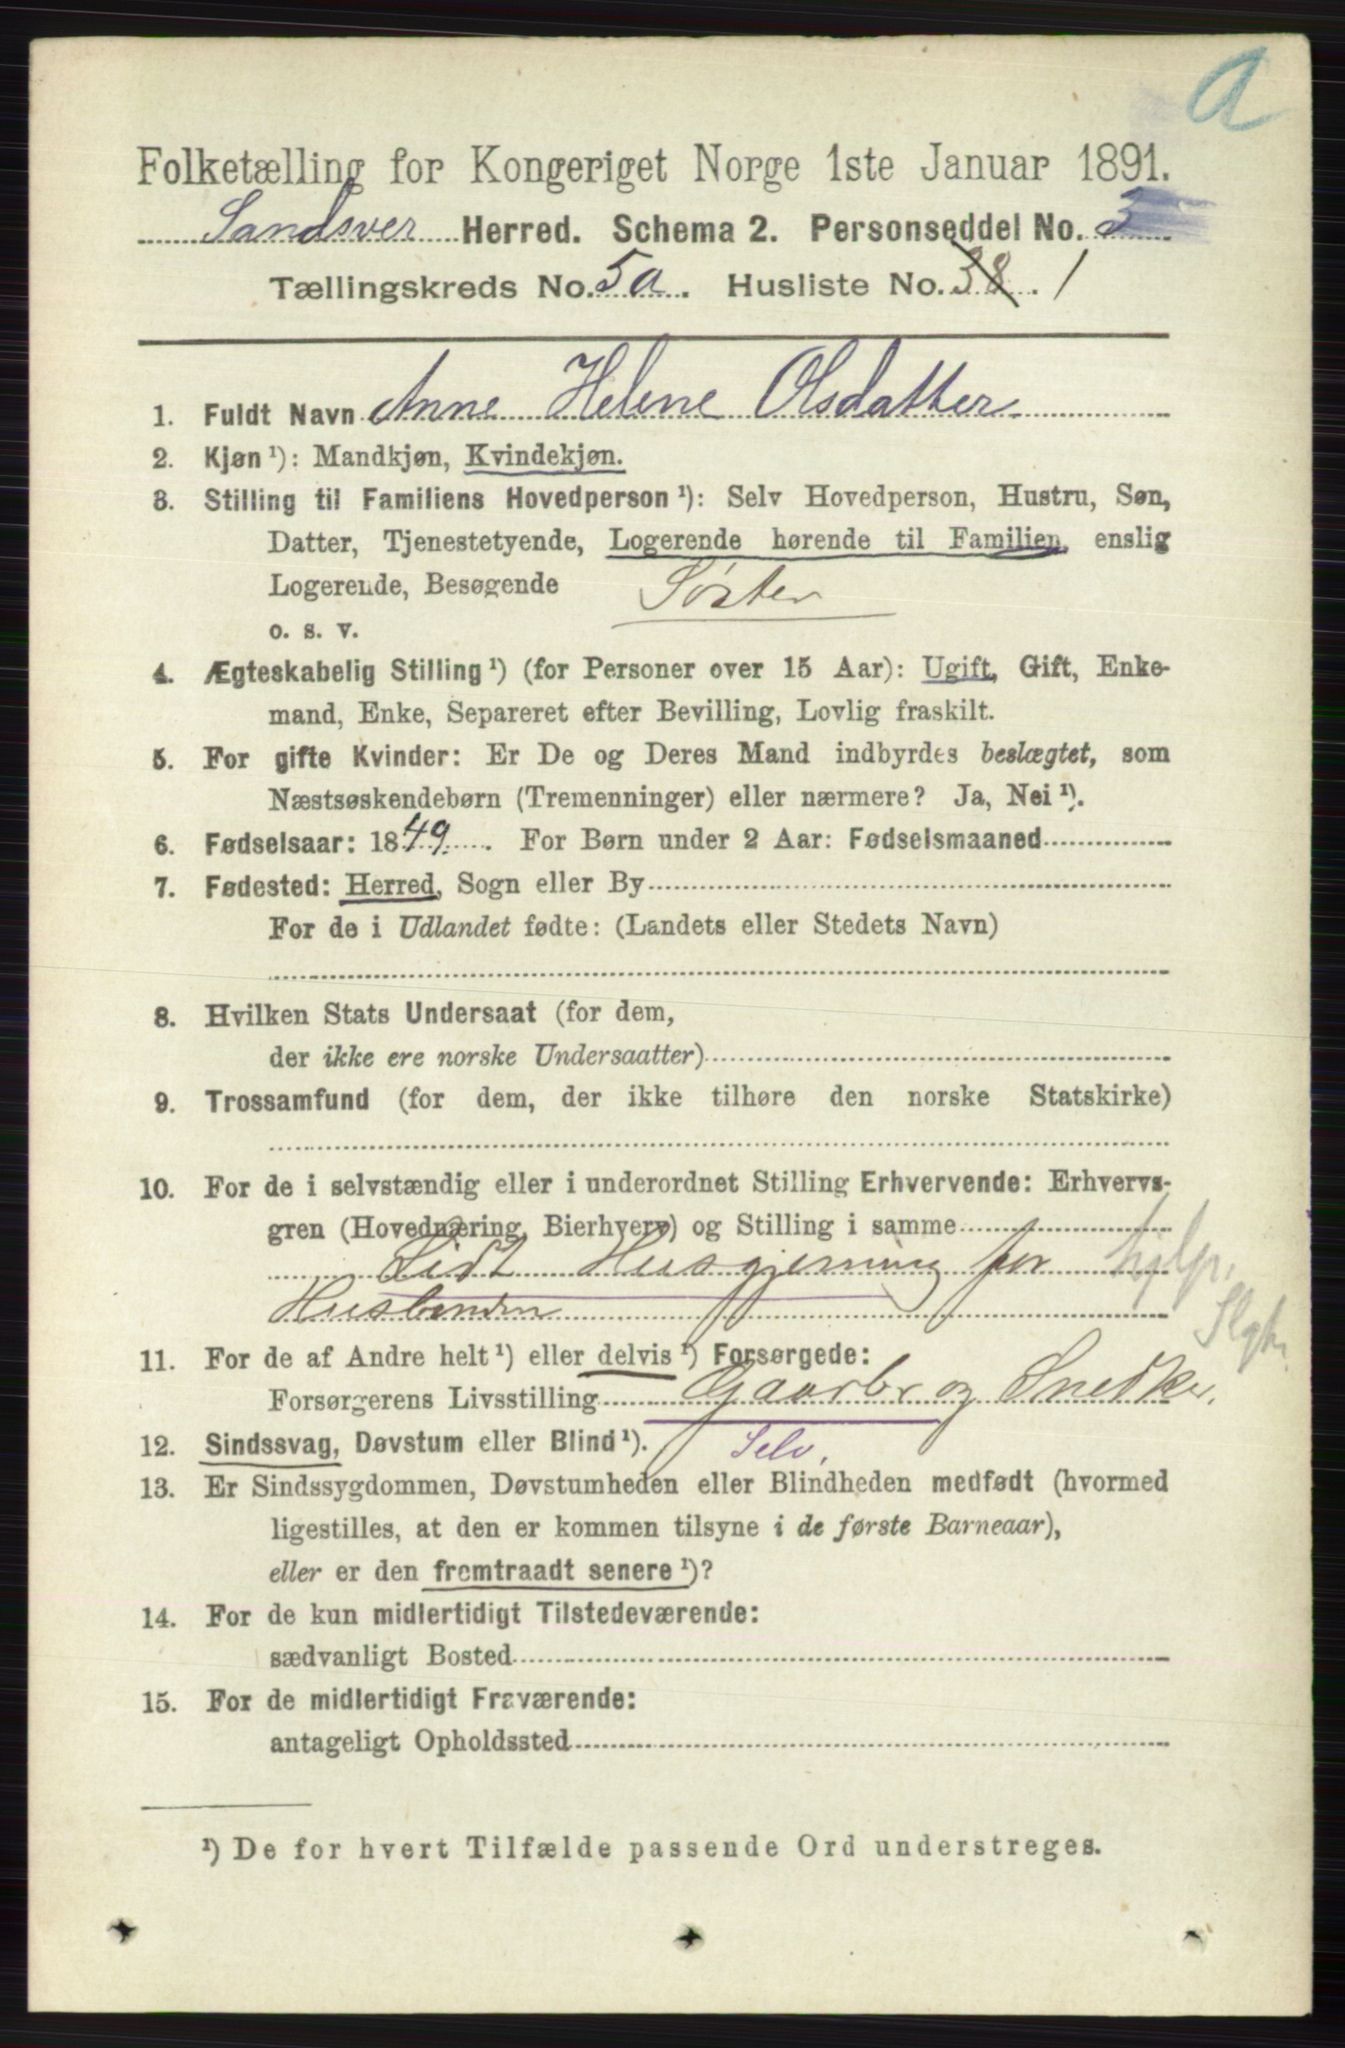 a
Folketælling for Kongeriget Norge 1ste Januar 1891.
Sandsver Herred. Schema 2. Personseddel No. 3
Tællingskreds No. 5a. Husliste No. 38. 1
1. Fuldt Navn Anne Helene Olsdatter
2. Kjøn ¹): Mandkjøn, Kvindekjøn.
3. Stilling til Familiens Hovedperson ¹): Selv Hovedperson, Hustru, Søn,
Datter, Tjenestetyende, Logerende hørende til Familien, enslig
Logerende, Besøgende Søster
o. s. v.
4. Ægteskabelig Stilling ¹) (for Personer over 15 Aar): Ugift, Gift, Enke-
mand, Enke, Separeret efter Bevilling, Lovlig fraskilt.
5. For gifte Kvinder: Er De og Deres Mand indbyrdes beslægtet, som
Næstsøskendebørn (Tremenninger) eller nærmere? Ja, Nei ¹).
6. Fødselsaar: 1849. For Børn under 2 Aar: Fødselsmaaned
7. Fødested: Herred, Sogn eller By
For de i Udlandet fødte: (Landets eller Stedets Navn)
8. Hvilken Stats Undersaat (for dem,
der ikke ere norske Undersaatter)
9. Trossamfund (for dem, der ikke tilhøre den norske Statskirke)
10. For de i selvstændig eller i underordnet Stilling Erhvervende: Erhvervs-
gren (Hovednæring, Bierhverv) og Stilling i samme
Lidt Husgjerning for hjlp.
Husbonden Slgtn.
11. For de af Andre helt ¹) eller delvis ¹) Forsørgede:
Forsørgerens Livsstilling Gaardbr og Snedker.
12. Sindssvag, Døvstum eller Blind ¹). Selv.
13. Er Sindssygdommen, Døvstumheden eller Blindheden medfødt (hvormed
ligestilles, at den er kommen tilsyne i de første Barneaar),
eller er den fremtraadt senere ¹)?
14. For de kun midlertidigt Tilstedeværende:
sædvanligt Bosted
15. For de midlertidigt Fraværende:
antageligt Opholdssted
¹) De for hvert Tilfælde passende Ord understreges.